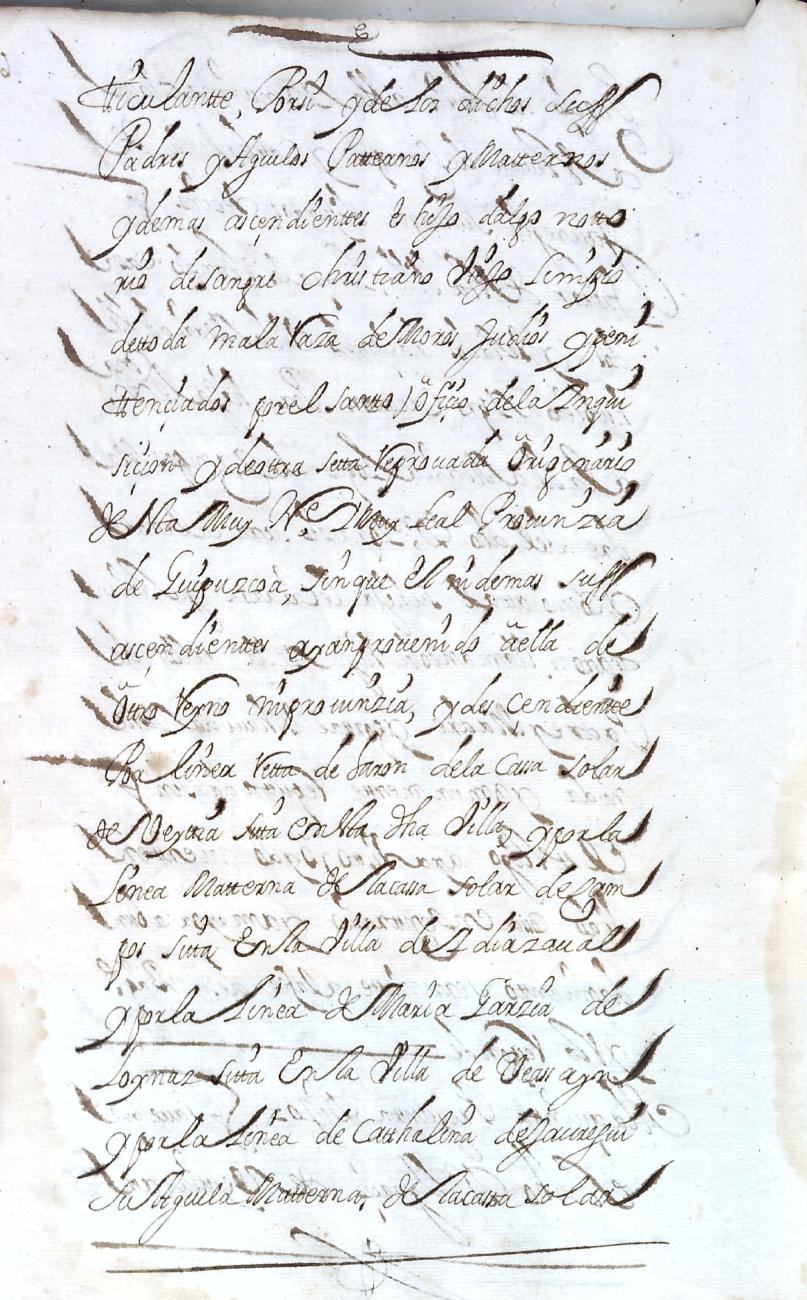 tticulantte, Porsi y de los dichos suss
Padres y Aguelos Patternos y Matternos
y demas ascendienttes es hijo dalgo notto
rio de sangre christiano Viejo Limpio
de ttoda mala Raza de Moros, Judios y peni
ttenciados por el santto officio de la Inqui
sicion y de ottra setta Reprouada Originario
de esta Muy N.e y Muy Leal Prouinzia
de Guipuzcoa, sin que el ni demas suss
ascendienttes ayan prouenido a ella de
Otro Reyno ni prouinzia, y descendientte
Por linea Retta de Varon de la Casa solar
de sitta en esta dha Villa, y por la
Linea Matterna de la casa solar de
sitta En la Villa de Ydiazaual
y por la Linea de Maria Garzia de
Loynaz sitta En la Villa de Veassayn
y por la Linea de Catthalina de Jauregui
su Aguela Matterna, de la cassa solar